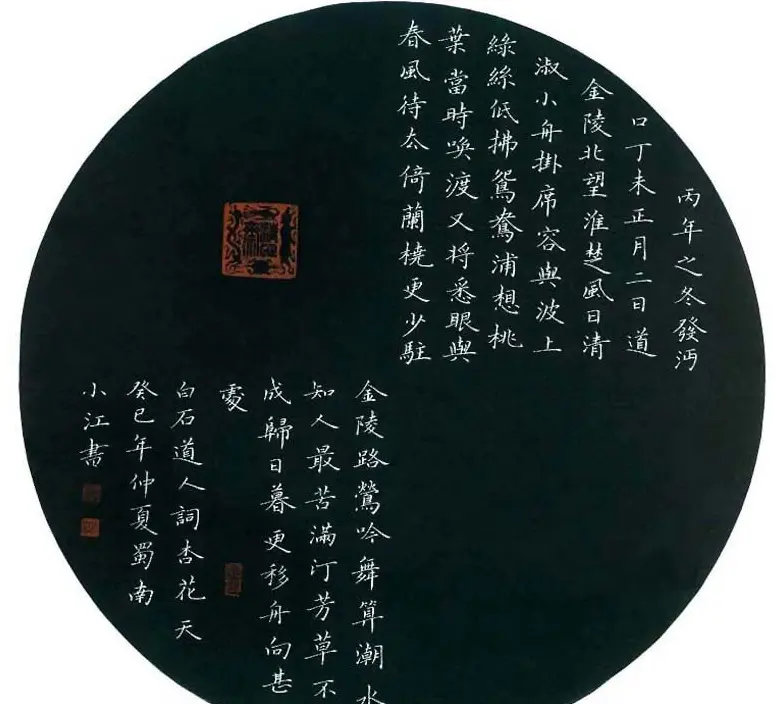 丙年之冬發沔
口丁未正月二日道
金陵北望淮楚風日清
淑小舟掛席容與波上
綠絲低拂鴛鴦浦想桃
葉當時喚渡又将愁眼與
春風待去倚蘭橈更少駐
金陵路鶯吟舞算潮水
知人最苦滿汀芳草不
成歸日暮更移舟向甚
處
白石道人詞杏花天
癸巳年仲夏蜀南
小江書